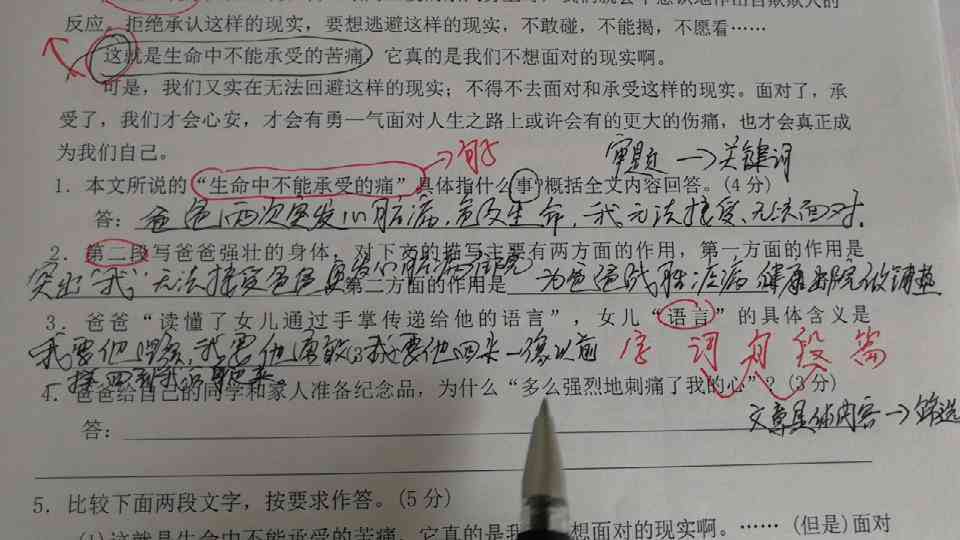 反应。拒绝承认这样的现实,要想逃避这样的现实,不敢碰,不能揭,不愿看……
这就是生命中不能承受的苦痛,它真的是我们不想面对的现实啊。
可是,我们又实在无法回避这样的现实;不得不去面对和承受这样的现实。面对了,承
受了,我们才会心安,才会有勇一气面对人生之路上或许会有的更大的伤痛,也才会真正成
为我们自己。
审题→关键词
1.本文所说的“生命中不能承受的痛”具体指什么事?概括全文内容回答。(4分)
答:爸爸两次突发心脏病,危及生命,我无法接受、无法面对.
2.第二段写爸爸强壮的身体,对下文的描写主要有两方面的作用,第一方面的作用是
突出“我”无法接受爸爸 第二方面的作用是 为爸爸战胜 病 健康出院做铺垫
3.爸爸“读懂了女儿通过手掌传递给他的语言”,女儿“语言”的具体含义是
我要他 我要他勇敢;我要他回来一像以前 字 词 句 段 篇
4.爸爸给自己的同学和家人准备纪念品,为什么“多么强烈地刺痛了我的心”?(3分)
文章具体内容→筛选
答:
5.比较下面两段文字,按要求作答。(5分)
(1)这就是生命中不能承受的苦痛,它真的是我 想面对的现实啊。……(但是)面对